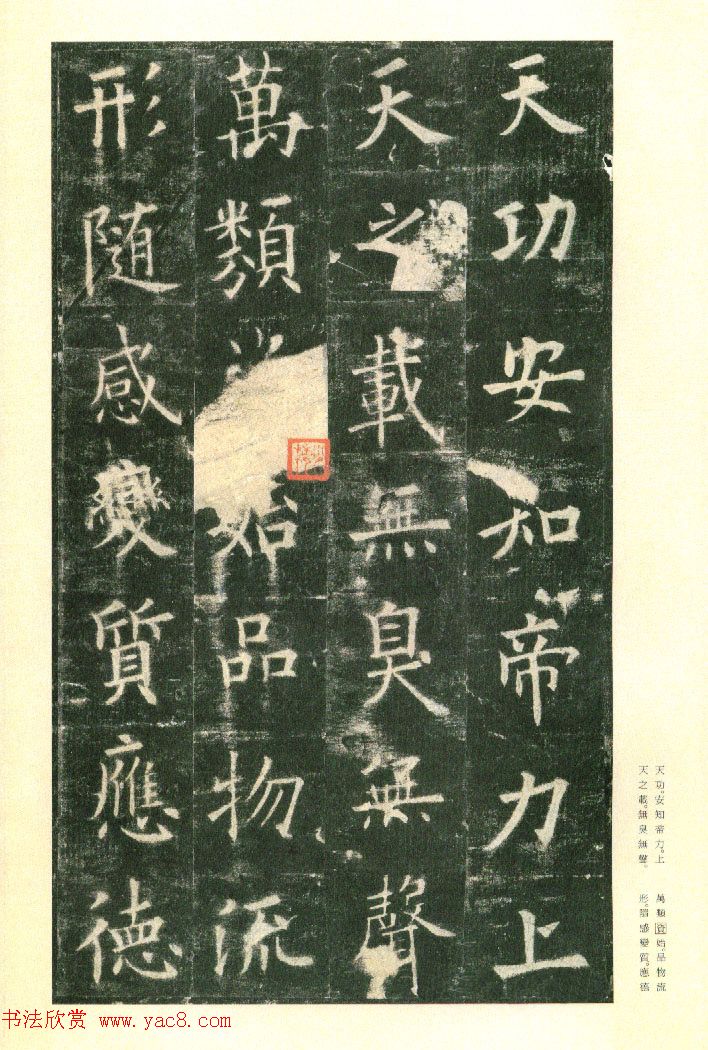 天功安知帝力上
天之載無臭無聲
萬類始品物流
形隨感變質應德
天功。安知帝力。上
天之載。無臭無聲。
萬類資始。品物流
形。隨感變質。應德
书法欣赏 www.yac8.com